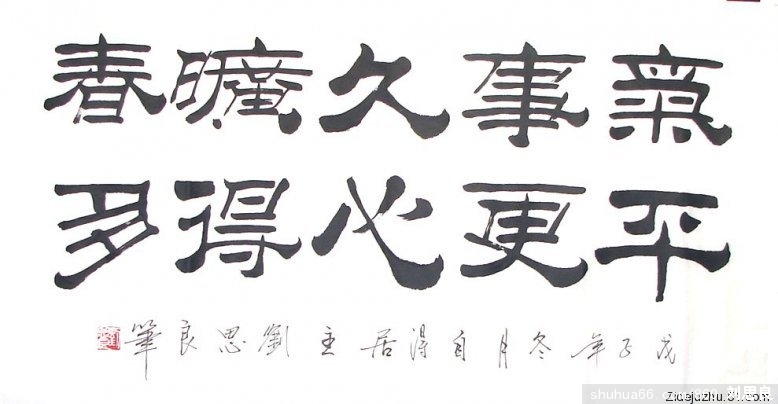 氣平
事更
久心
曠得
春多
戊子年冬月自得居主劉思良筆
刘思良
Zidejuzhu.51.com